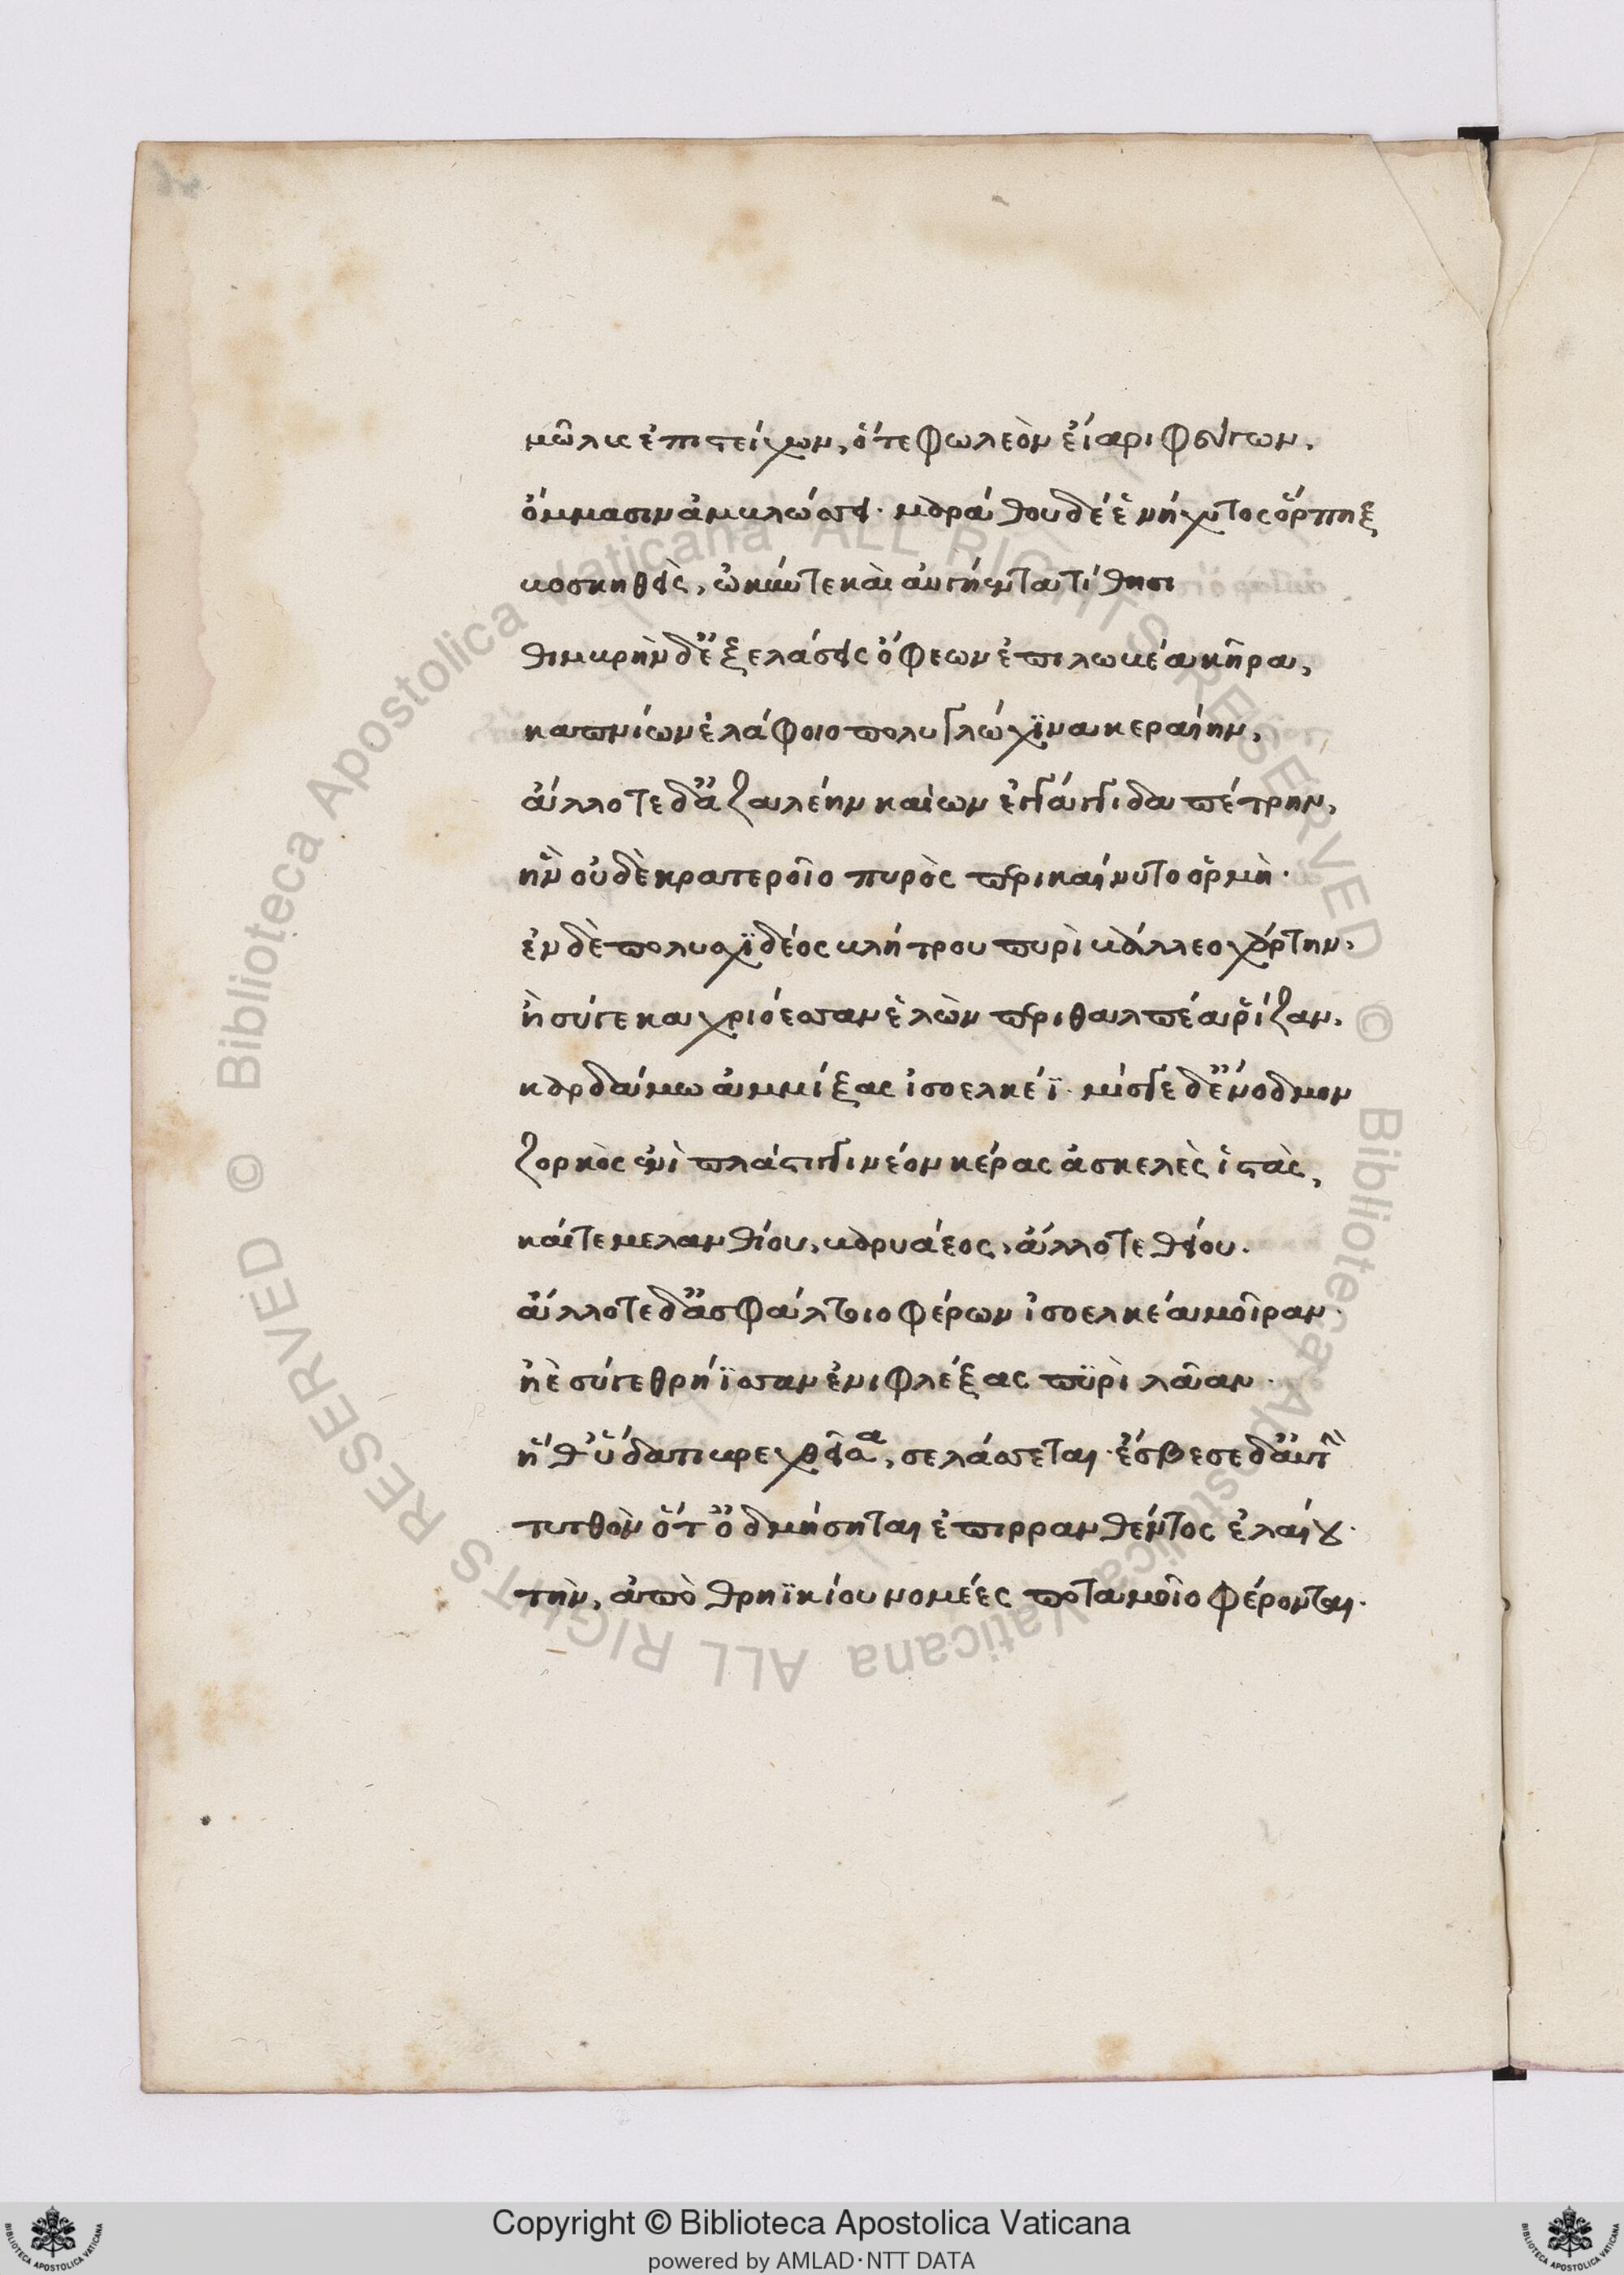 μῶλις ἐπιστείχων, ὅτε φωλεὸν εἴαρι φεύγων,
ὄμμασιν ἀμβλώσσει· μαράθου δέ ἑ νήχυτος ὄρπηξ
βοσκηθεὶς, ὠκύν τε καὶ αὐγήεντα τίθησι
θιμβρὴν δ' ἐξελάσεις ὄφεων ἐπιλωβέα κῆρα,
καπνίων ἐλάφοιο πολυγλώχϊνα κεραίην,
ἄλλοτε δ' ἀζαλέην καίων ἐγγάγγιδα πέτρην,
ἣν οὐδὲ κρατεροῖο πυρὸς περικαίνυτο ὁρμὴ·
ἐν δὲ πολυσχϊδέος βλήτρου πυρὶ βάλλεο χάρτην,
ἢ σύγε καχριόεσσαν ἑλὼν περιθαλπέα ῥίζαν,
καρδάμω ἀμμίξας ἰσοελκέϊ· μίσγε δ' ἔνοδμον
ζορκὸς ἐνὶ πλάστιγγι νέον κέρας ἀσκελὲς ἱστὰς,
καίτε μελανθίου, βαρυάεος, ἄλλοτε θείου.
ἄλλοτε δ' ἀσφάλτοιο φέρων ἰσοελκέα μοῖραν·
ἠὲ σύγε θρήϊσσαν ἐνιφλέξας πϋρὶ λᾶαν·
ἥ θ' ὕδατι βρεχθεῖσα, σελάσσεται· ἔσβεσε δ' αὐγὴν
τυτθὸν ὅτ' ὀδμήσηται ἐπιρρανθέντος ἐλαίου·
τὴν, ἀπὸ θρηϊκίου νομέες ποταμοῖο φέρονται·
Copyright © Biblioteca Apostolica Vaticana
powered by AMLAD·NTT DATA